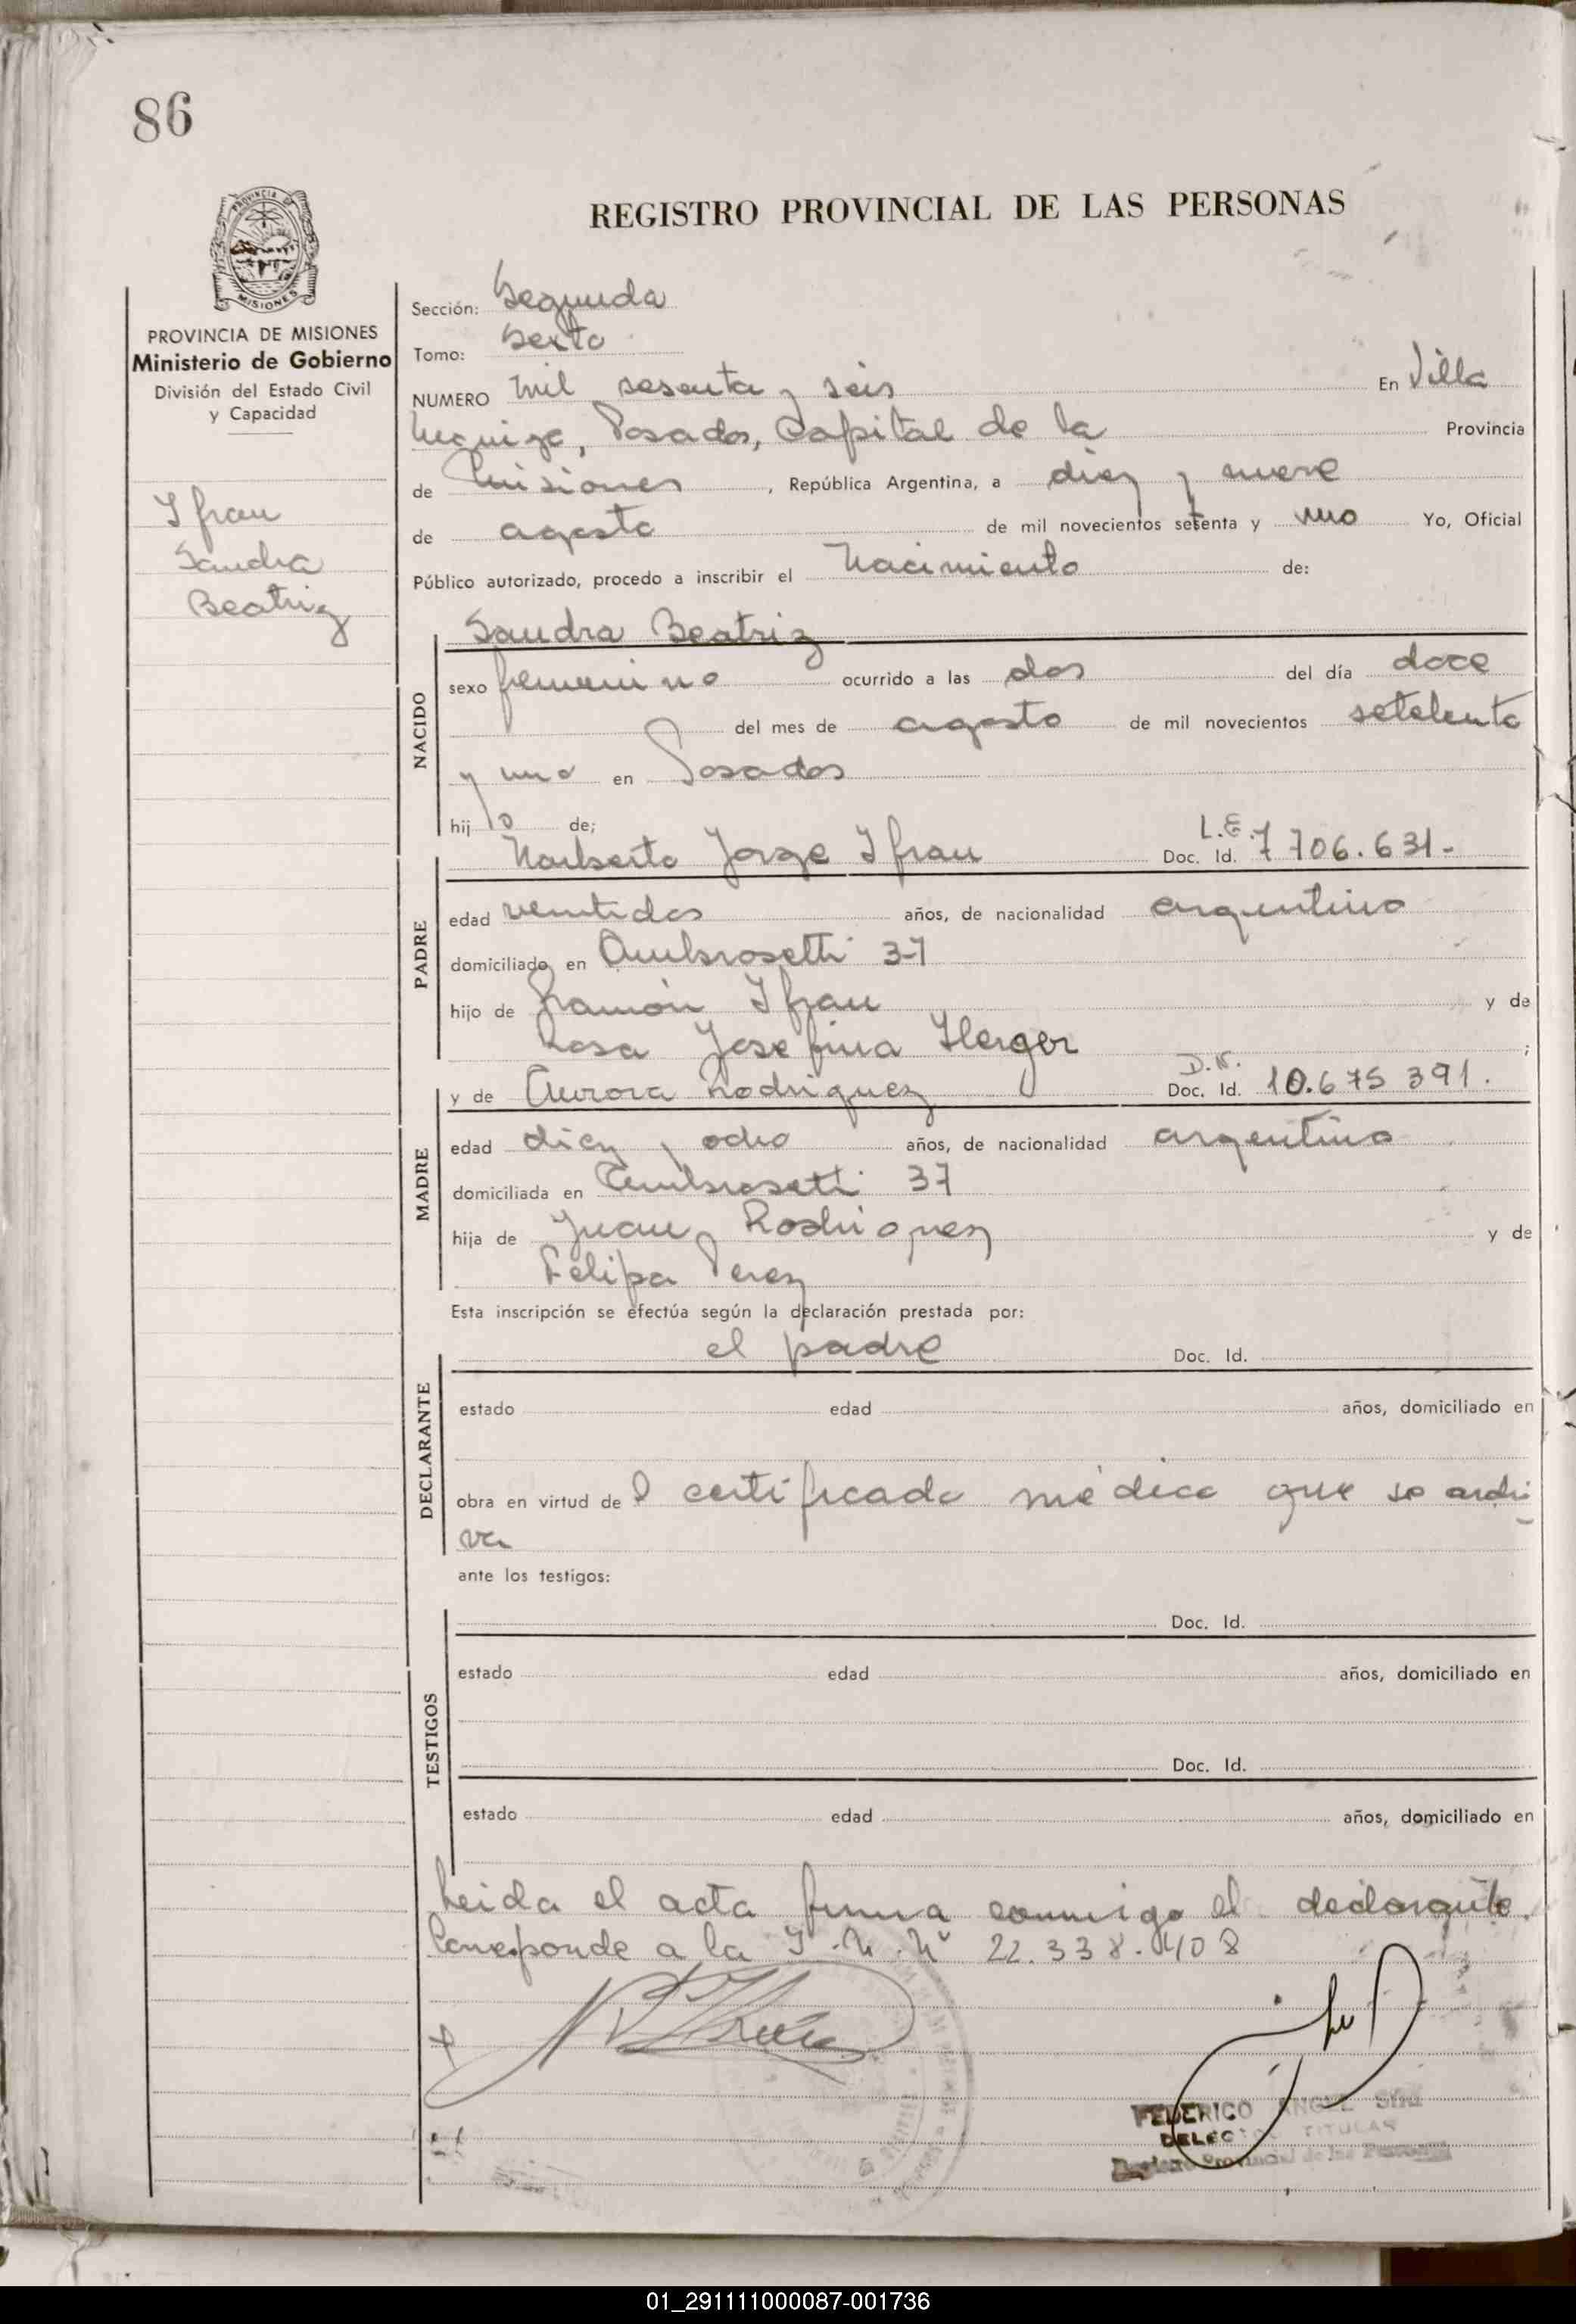 86
REGISTRO PROVINCIAL DE LAS PERSONAS
PROVINCIA DE MISIONES
Ministerio de Gobierno
División del Estado Civil
y Capacidad
Ifran
Sandra
Beatriz
Sección: Segunda
Tomo: Sexto
NUMERO mil sesenta y seis En Villa
Urquiza, Posadas, Capital de la Provincia
de Misiones, República Argentina, a diez y nueve
de agosto de mil novecientos setenta y uno Yo, Oficial
Público autorizado, procedo a inscribir el Nacimiento de:
Sandra Beatriz
NACIDO
sexo femenino ocurrido a las dos del día doce
del mes de agosto de mil novecientos setelenta
y uno en Posadas
hij o de;
PADRE
Norberto Jorge Ifran L.E. Doc. Id. 7 706.631-
edad ventidos años, de nacionalidad argentino
domiciliado en Ambrosetti 37
hijo de Ramón Ifran y de
Rosa Josefina Herger ;
MADRE
y de Aurora Rodriguez D.N. Doc. Id. 10.675 391.
edad diez y ocho años, de nacionalidad argentino
domiciliada en Ambrosetti 37
hija de Juan Rodriguez y de
Felipa Perez
Esta inscripción se efectúa según la declaración prestada por:
DECLARANTE
el padre Doc. Id.
estado edad años, domiciliado en
obra en virtud de l certificado médico que se archi
va
ante los testigos:
TESTIGOS
Doc. Id.
estado edad años, domiciliado en
Doc. Id.
estado edad años, domiciliado en
Leida el acta firma conmigo el declarante.
Corresponde a la I.N.Nº 22.338.408
FEDERICO ANGEL
DELEGADO TITULAR
Registro Provincial de las Personas
01_291111000087-001736